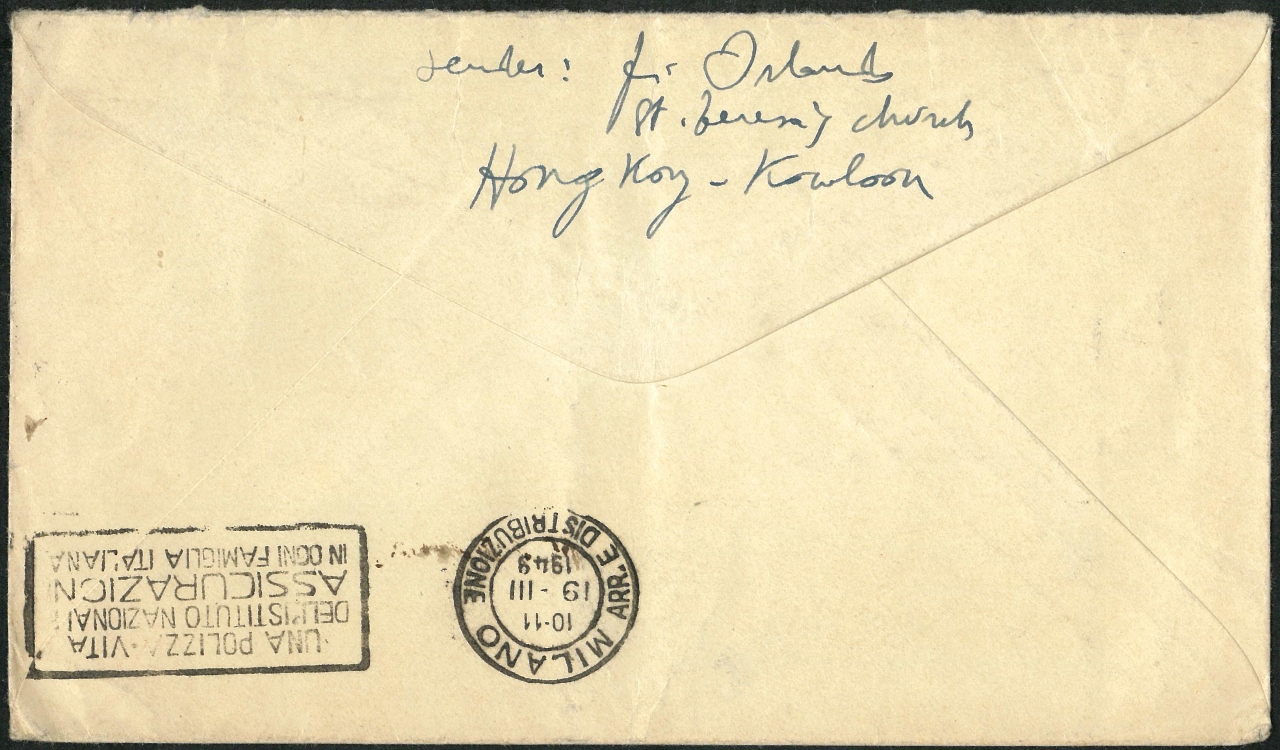 sender: fr. Orlando
St. Teresa's church
Hong Kong - Kowloon
UNA POLIZZA VITA
DELL'ISTITUTO NAZIONALE
ASSICURAZIONI
IN OGNI FAMIGLIA ITALIANA
MILANO
ARR. E DISTRIBUZIONE
10-11
19 - III
1949